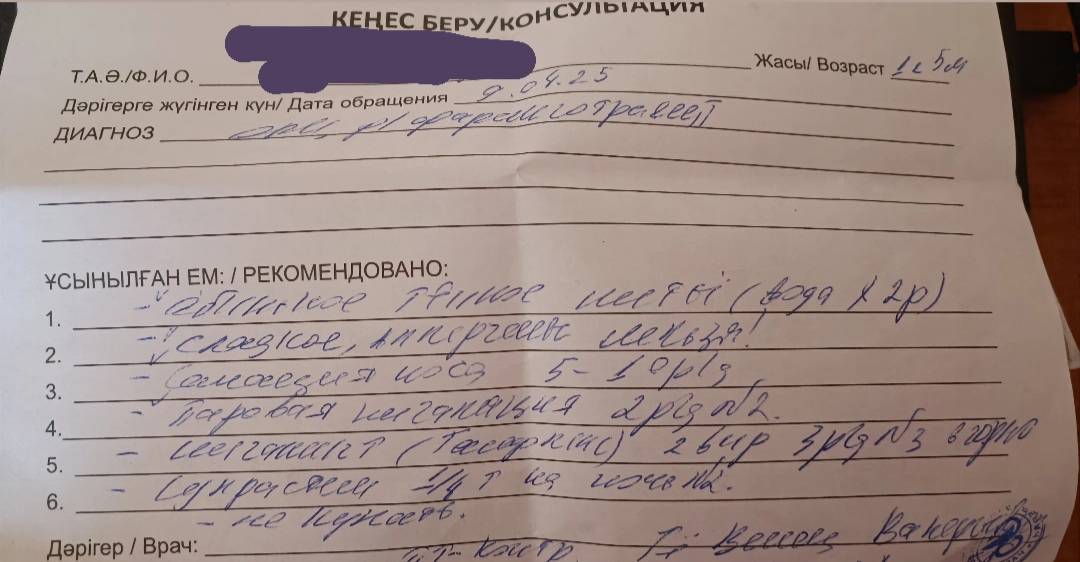 КЕҢЕС БЕРУ/КОНСУЛЬТАЦИЯ
Т.А.Ә./Ф.И.О.
Жасы/ Возраст 1г 5м
Дәрігерге жүгінген күн/ Дата обращения 9.04.25
ДИАГНОЗ фаринготрахеит
ҰСЫНЫЛҒАН ЕМ: / РЕКОМЕНДОВАНО:
1. - обильное теплое питьё (вода х 2р)
2. - сладкое, аллергены нельзя!
3. - Санация носа 5-10 р/д
4. - Паровая ингаляция 2 р/д №2.
5. - ингалипт 2 впр 3 р/д №3 в горло
6. - Супрастин 1/4 т на ночь №2.
- не купать.
Дәрігер / Врач: